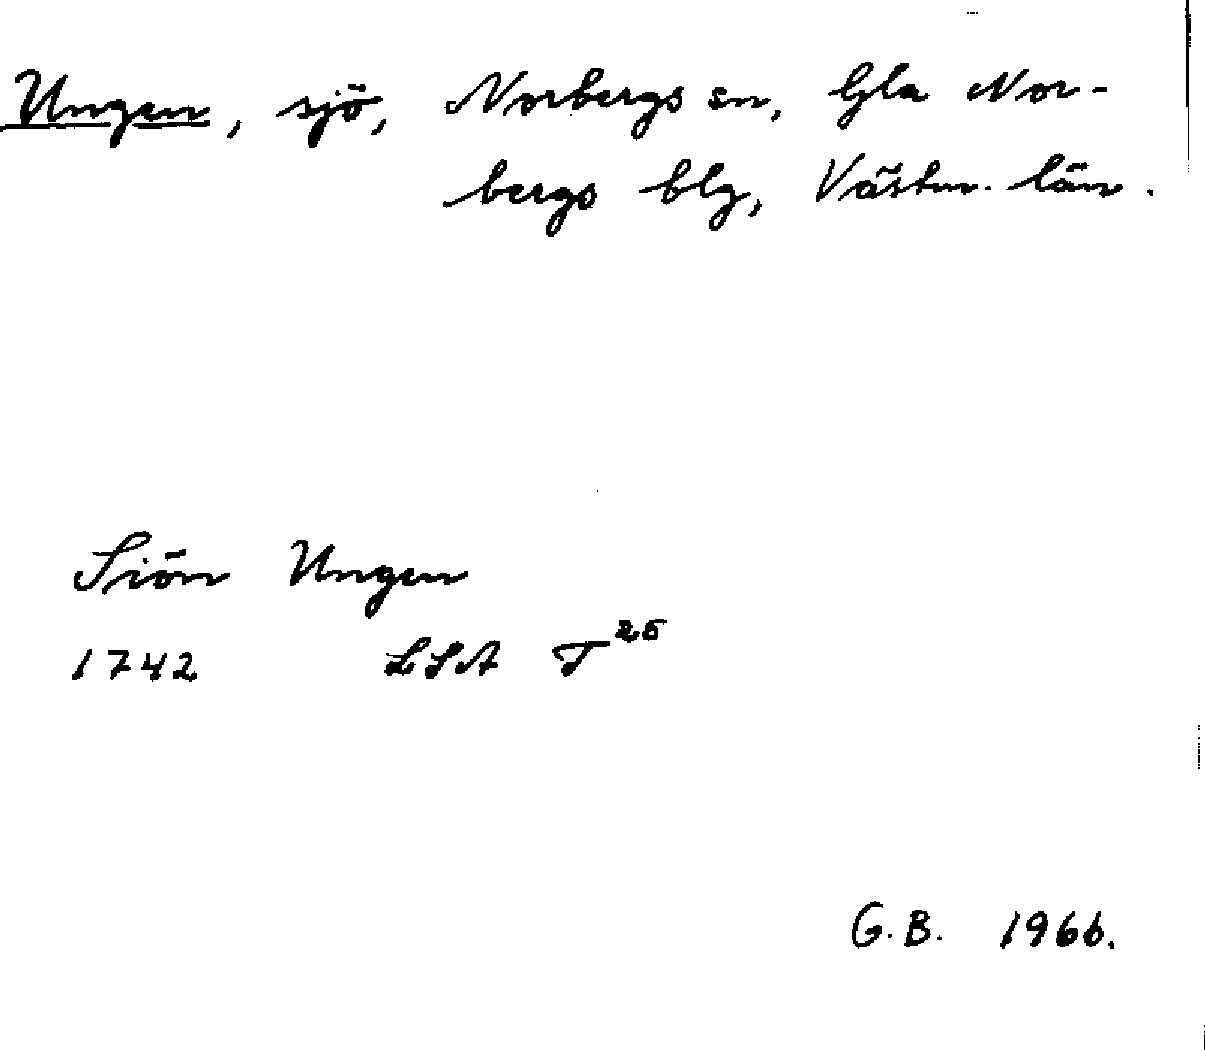 Ungen, sjö, Norbergs sn, Gla Nor-
bergs blg, Västm. län.
Siön Ungen
1742 LSA T 25
G.B. 1966.